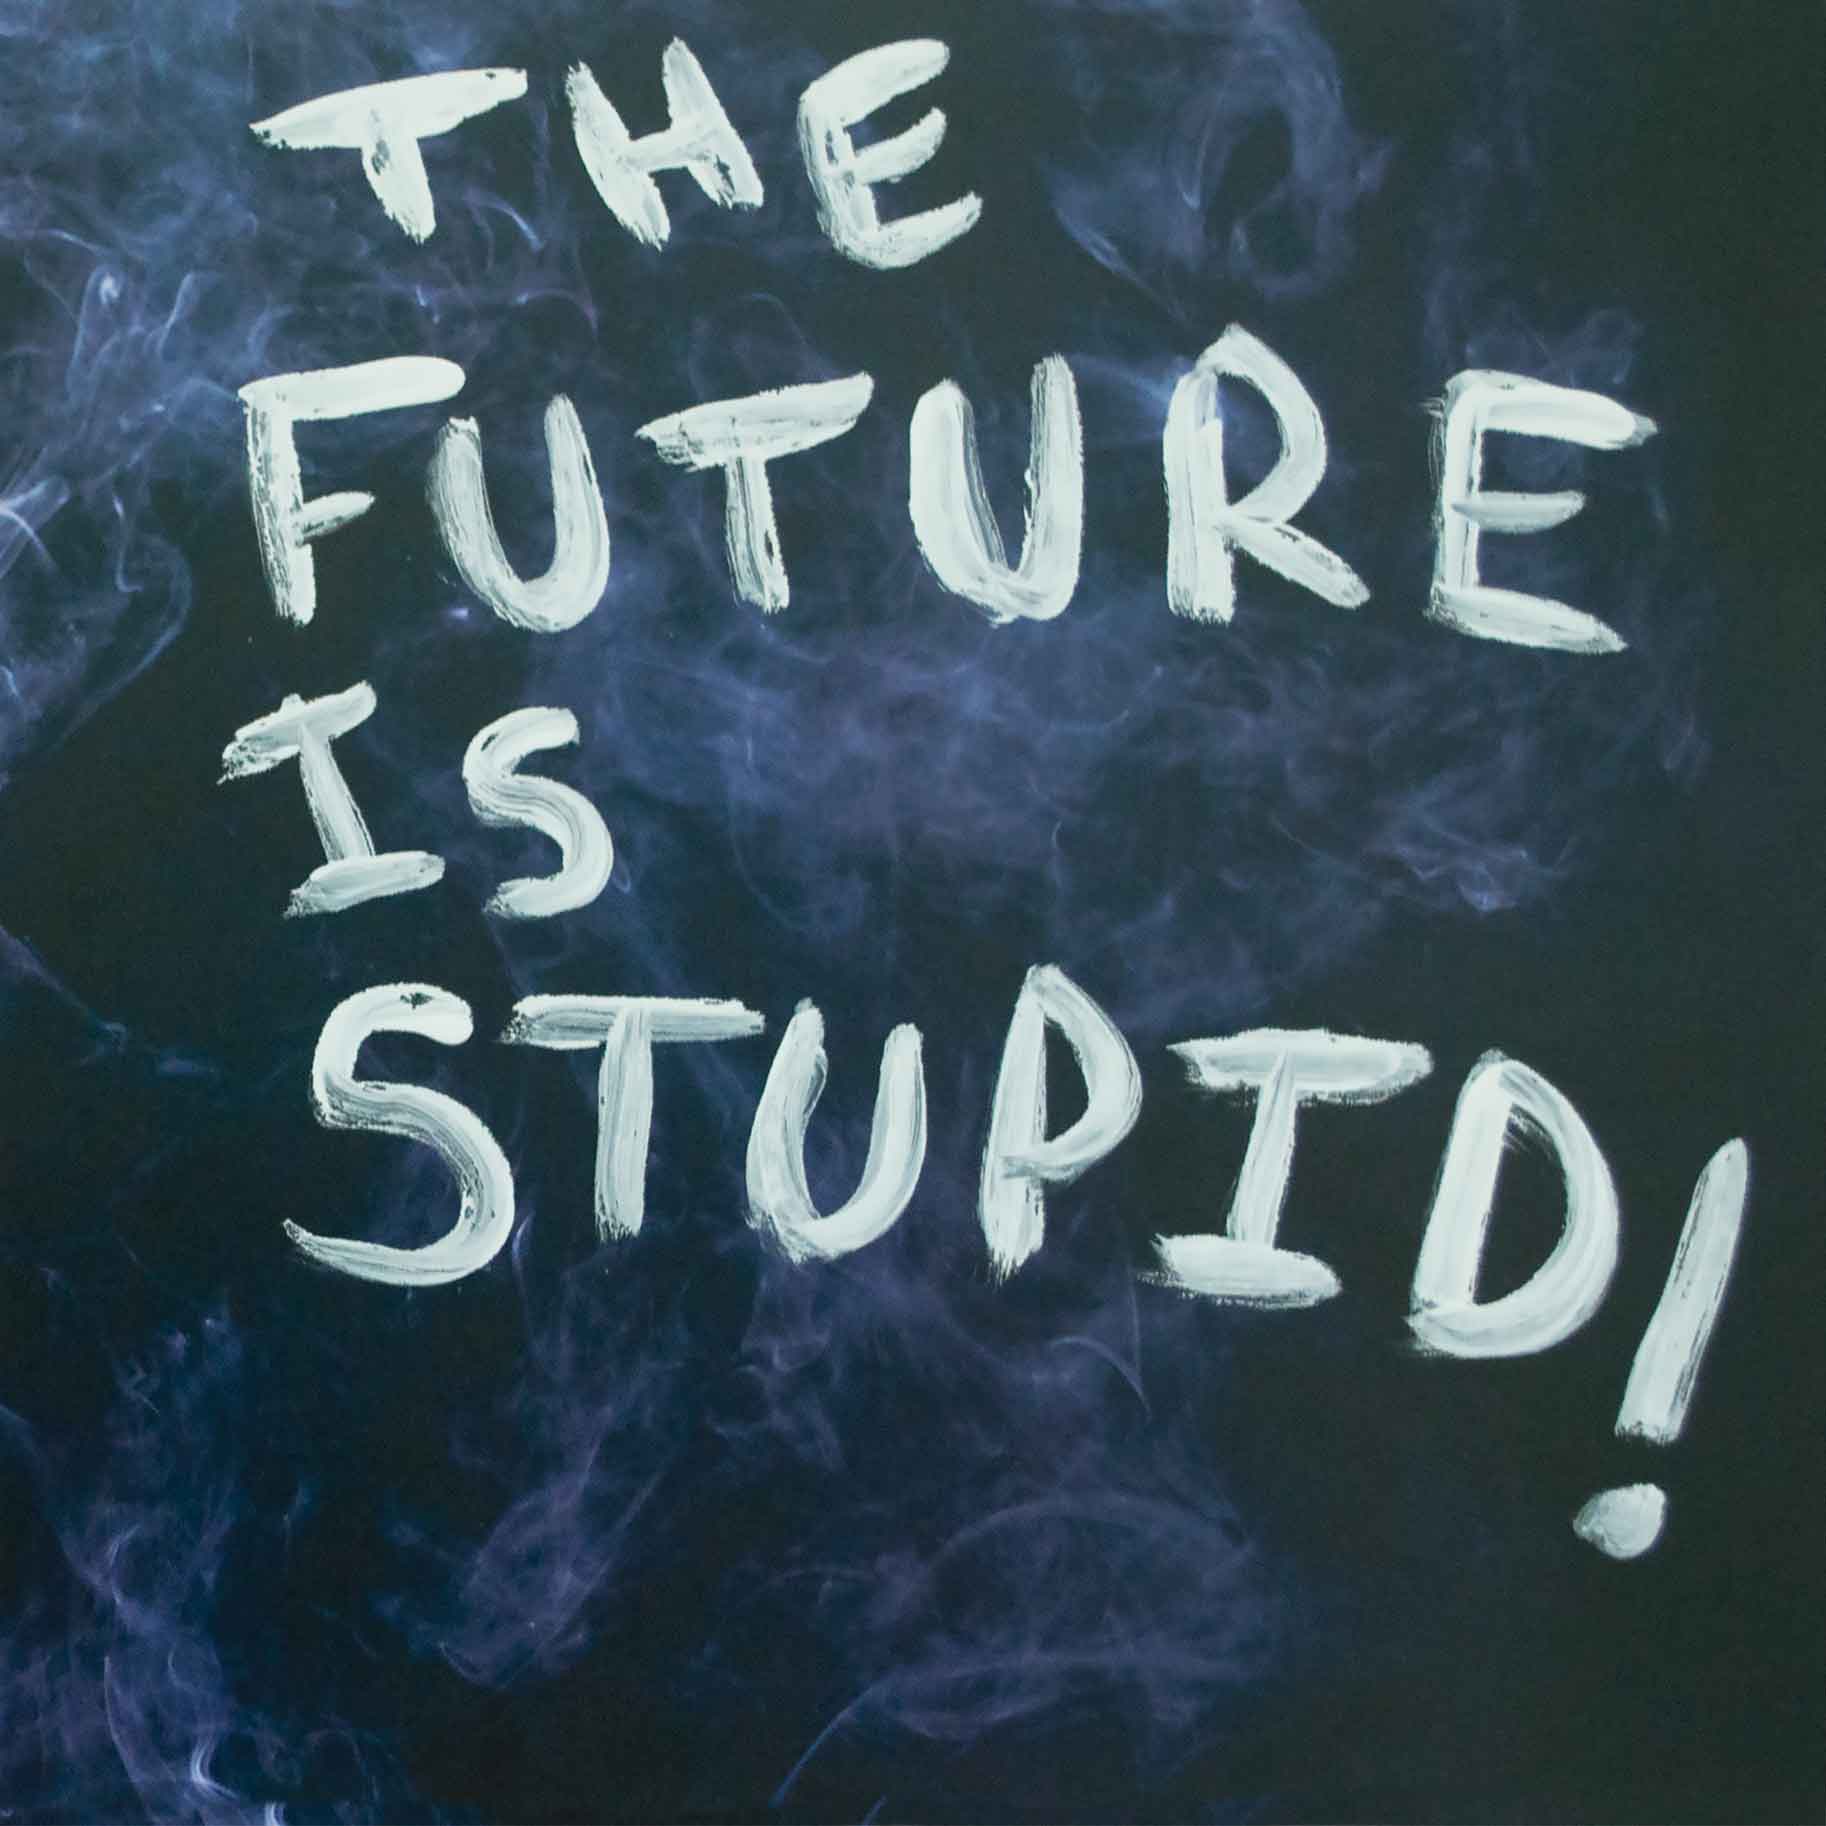 THE
FUTURE
IS
STUPID!